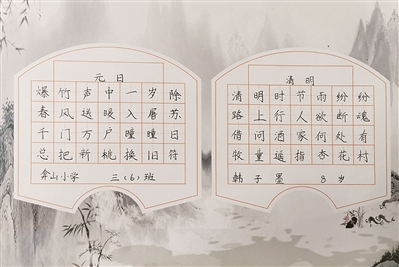 元日
爆竹声中一岁除
春风送暖入屠苏
千门万户曈曈日
总把新桃换旧符
弇山小学 三(6)班
清明
清明时节雨纷纷
路上行人欲断魂
借问酒家何处有
牧童遥指杏花村
韩子墨 8岁